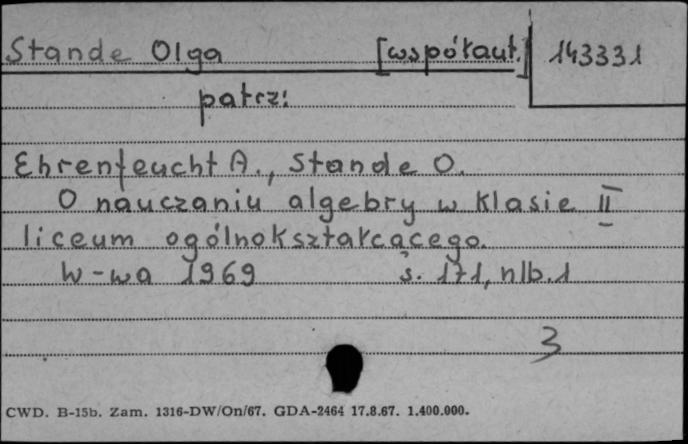 Stande Olga [współaut.] 143331
patrz:
Ehrenfeucht A., Stande O.
O nauczaniu algebry w klasie II
liceum ogólnokształcącego.
W-wa 1969 s. 171, nlb.1
3
CWD. B-15b. Zam. 1316-DW/On/67. GDA-2464 17.8.67. 1.400.000.